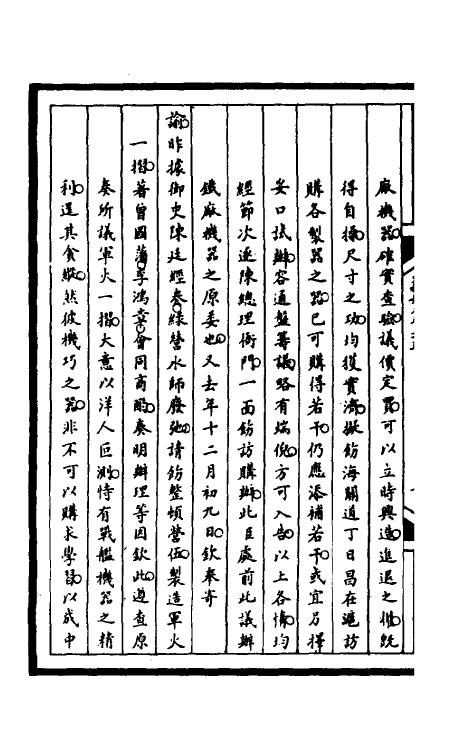 廠機器確實查驗議價定買可以立時興造進退之權旣
得自操尺寸之功均獲實濟擬飭海關道丁日昌在滬訪
購各製器之器已可購得若干仍應添補若干或宜另擇
妥口試辦容通盤籌議略有端倪方可入告以上各情均
經節次逐陳總理衙門一面飭訪購辦此臣處前此議辦
鐵廠機器之原委也又去年十二月初九日欽奉寄
諭昨據御史陳廷經奏綠營水師廢弛請飭整頓營伍製造軍火
一摺著曾國藩李鴻章會同商酌奏明辦理等因欽此遵查原
奏所議軍火一摺大意以洋人叵測恃有戰艦機器之精
利逞其貪縱然彼機巧之器非不可以購求學習以成中